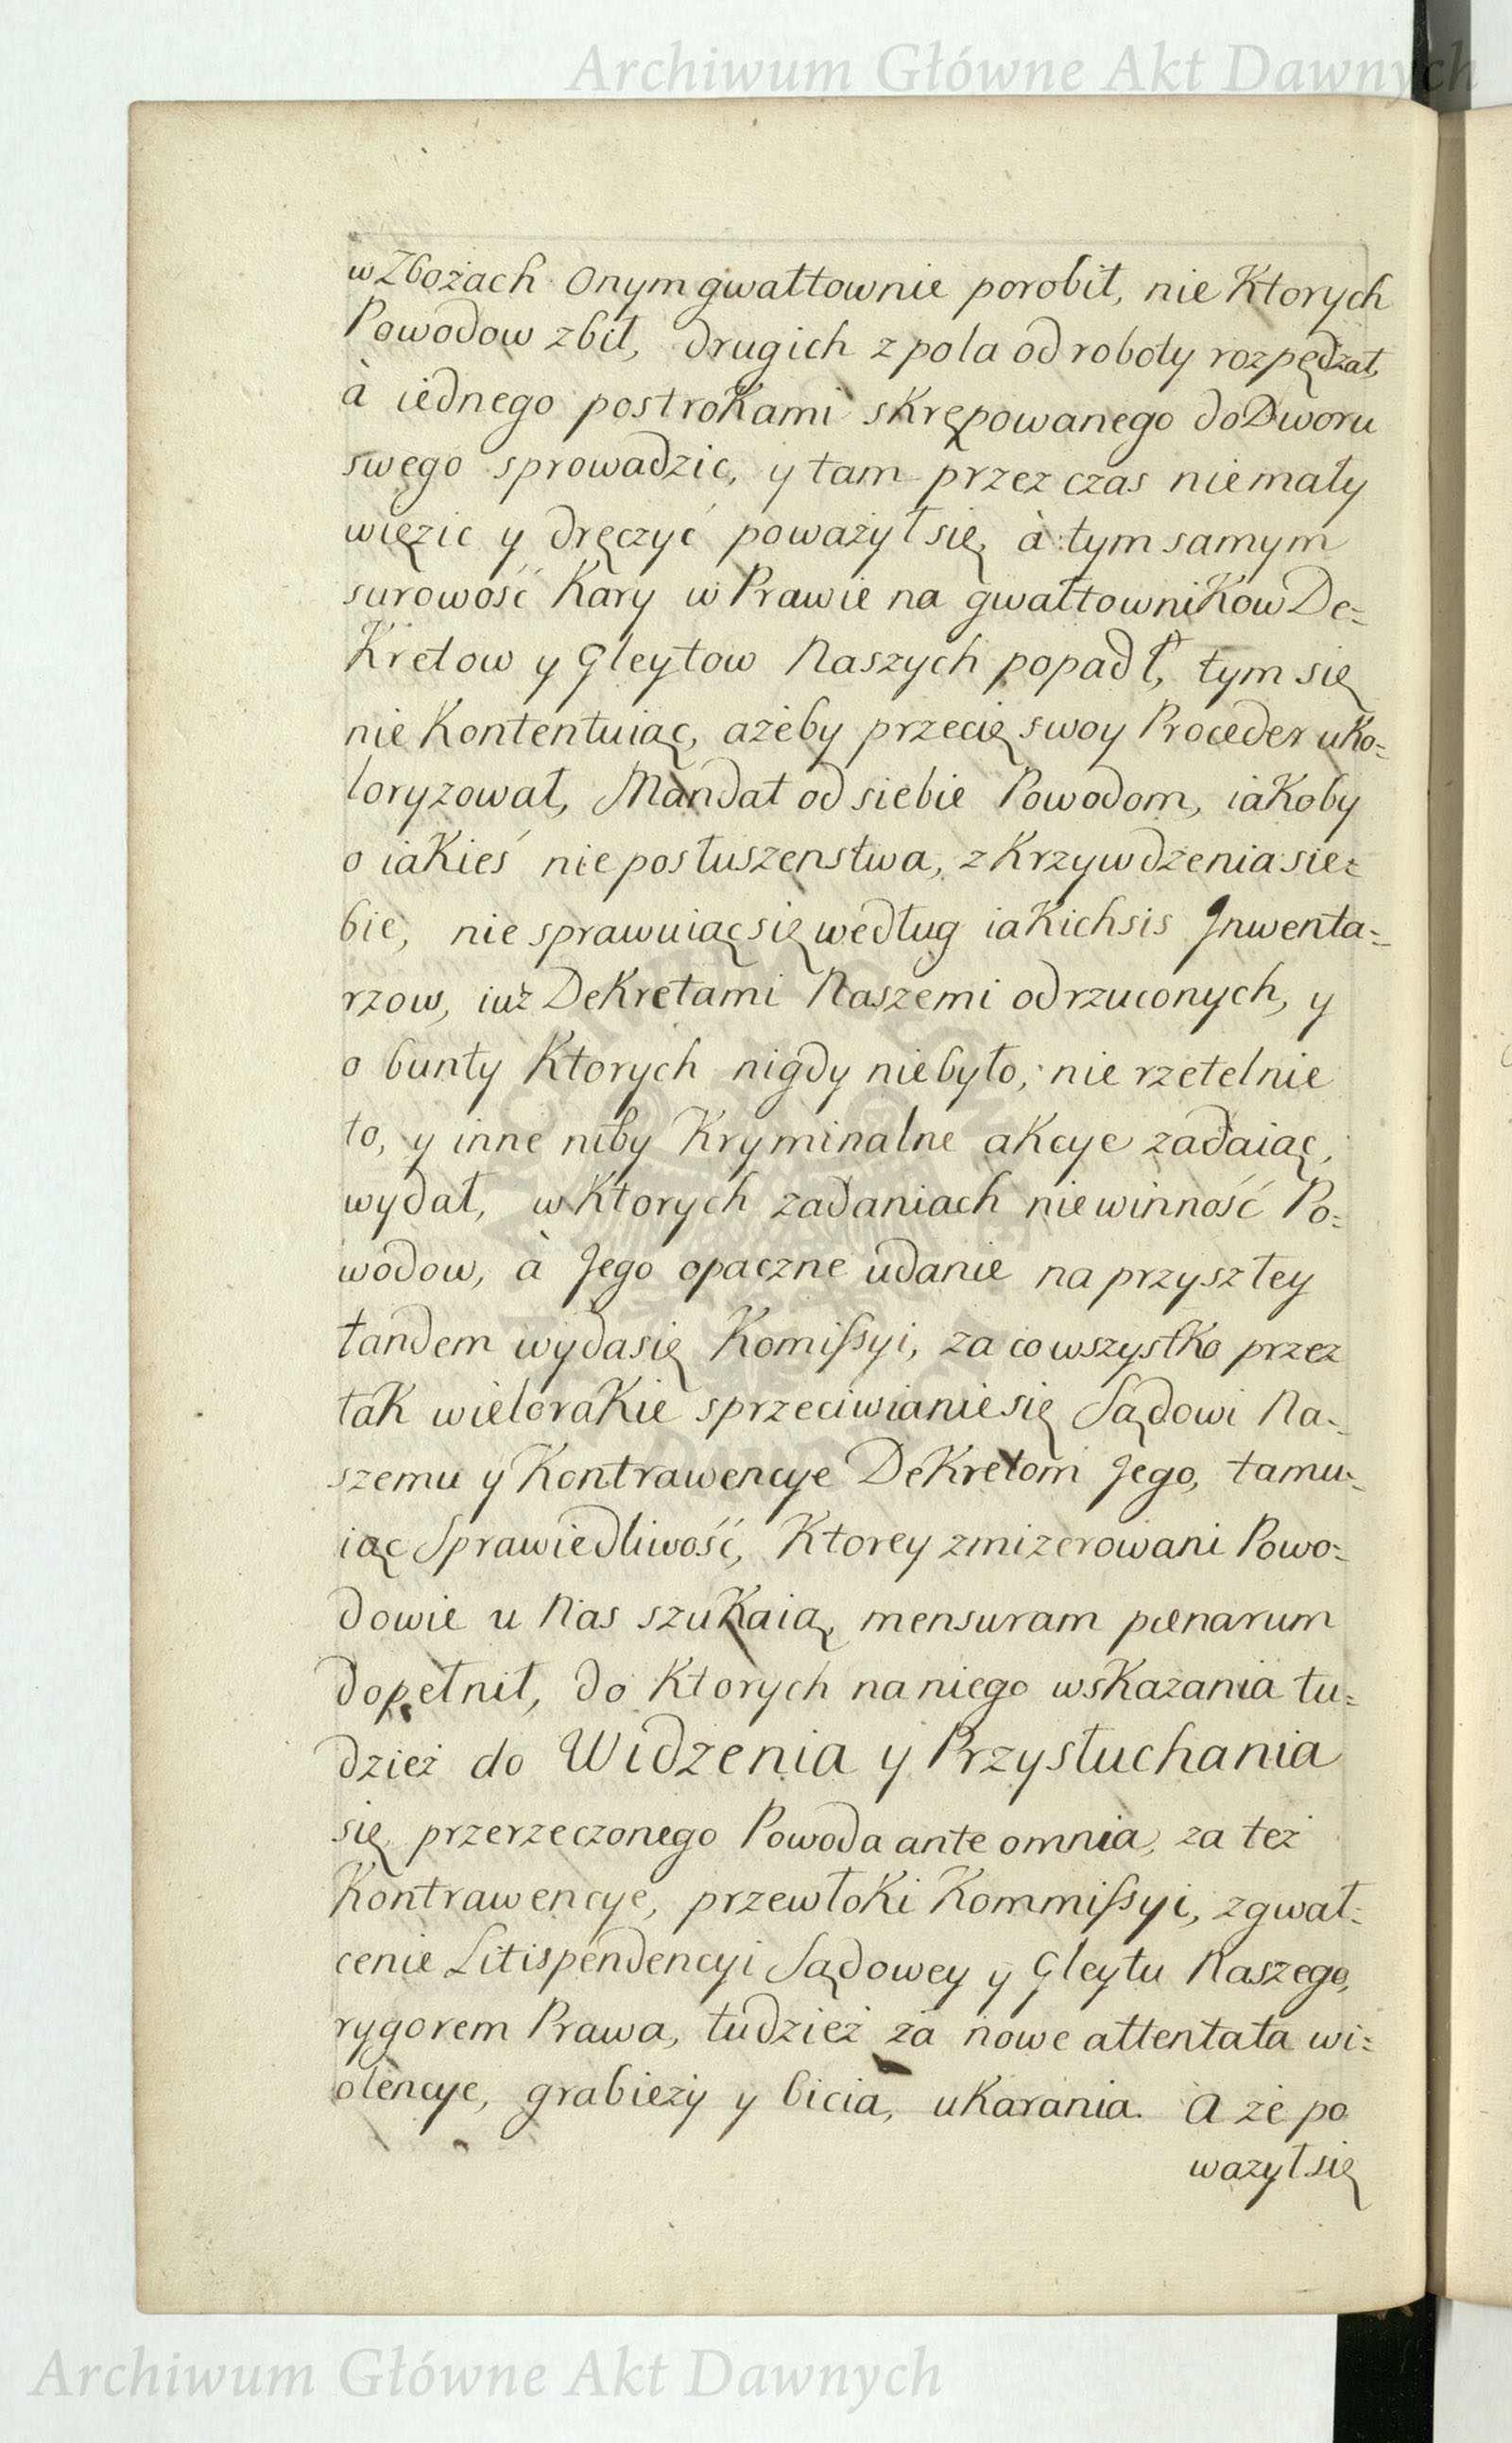 Archiwum Główne Akt Dawnych
w Zbożach onym gwałtownie porobił, nie Ktorych
Powodow zbił, drugich z pola od roboty rozpędzał,
à iednego postroKami sKrępowanego do Dworu
swego sprowadzic, y tam przez czas niemały
więzic y dręczyć poważył się, à tym samym
surowość Kary w Prawie na gwałtowniKow De=
Kretow y Gleytow Naszych popadł, tym się
nie Kontentuiąc, ażeby przecię swoy Proceder uKo=
loryzował, Mandat od siebie Powodom, iaKoby
o iaKieś nieposłuszenstwa, zKrzywdzenia sie=
bie, nie sprawuiąc się według iaKichsis Inwenta=
rzow, iuż DeKretami Naszemi odrzuconych, y
o bunty Ktorych nigdy niebyło, nie rzetelnie
to, y inne niby Kryminalne aKcye zadaiąc,
wydał, w Ktorych zadaniach niewinność Po=
wodow, à Jego opaczne udanie na przyszłey
tandem wyda się Komissyi, za co wszystKo przez
taK wieloraKie sprzeciwianie się Sądowi Na=
szemu y Kontrawencye DeKretom Jego, tamu=
iąc Sprawiedliwość, Ktorey zmizerowani Powo=
dowie u Nas szuKaią, mensuram pænarum
dopełnił, do Ktorych na niego wsKazania tu=
dzież do Widzenia y Przysłuchania
się przerzeczonego Powoda ante omnia, za też
Kontrawencye, przewłoKi Kommissyi, zgwał=
cenie Litispendencyi Sądowey y Gleytu Naszego,
rygorem Prawa, tudzież za nowe attentata wi=
olencye, grabieży y bicia, uKarania. A że po
ważył się
Archiwum Główne Akt Dawnych